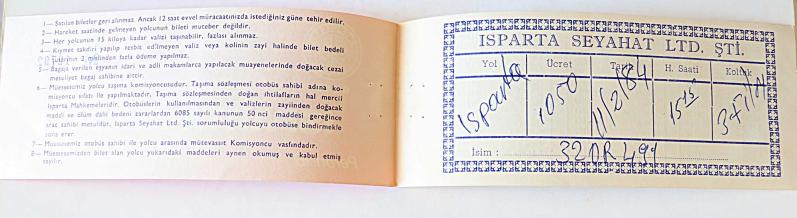 1— Satılan biletler geri alınmaz. Ancak 12 saat evvel müracaatınızda istediğiniz güne tehir edilir.
2— Hareket saatinde gelmeyen yolcunun bileti muteber değildir.
3— Her yolcunun 15 kiloya kadar valizi taşınabilir, fazlası alınmaz.
4— Kıymet takdiri yapılıp tesbit edilmeyen valiz veya kolinin zayi halinde bilet bedeli
2 mislinden fazla ödeme yapılmaz.
5— Bagaja verilen eşyanın idari ve adli makamlarca yapılacak muayenelerinde doğacak cezai
mesuliyet bagaj sahibine aittir.
6— Müessesemiz yolcu taşıma komisyoncusudur. Taşıma sözleşmesi otobüs sahibi adına ko-
misyoncu sıfatı ile yapılmaktadır. Taşıma sözleşmesinden doğan ihtilafların hal mercii
Isparta Mahkemeleridir. Otobüslerin kullanılmasından ve valizlerin zayiinden doğacak
maddi ve ölüm dahi bedeni zararlardan 6085 sayılı kanunun 50 nci maddesi gereğince
araç sahibi mesuldür. Isparta Seyahat Ltd. Şti. sorumluluğu yolcuyu otobüse bindirmekle
sona erer.
7— Müessesemiz otobüs sahibi ile yolcu arasında mütevassıt Komisyoncu vasfındadır.
8— Müessesemizden bilet alan yolcu yukarıdaki maddeleri aynen okumuş ve kabul etmiş
sayılır.
ISPARTA SEYAHAT LTD. ŞTİ.
Yol Ücret Tarih H. Saati Koltuk
Isparta 1050 11/2/84 15 15
İsim : 32 DR 499